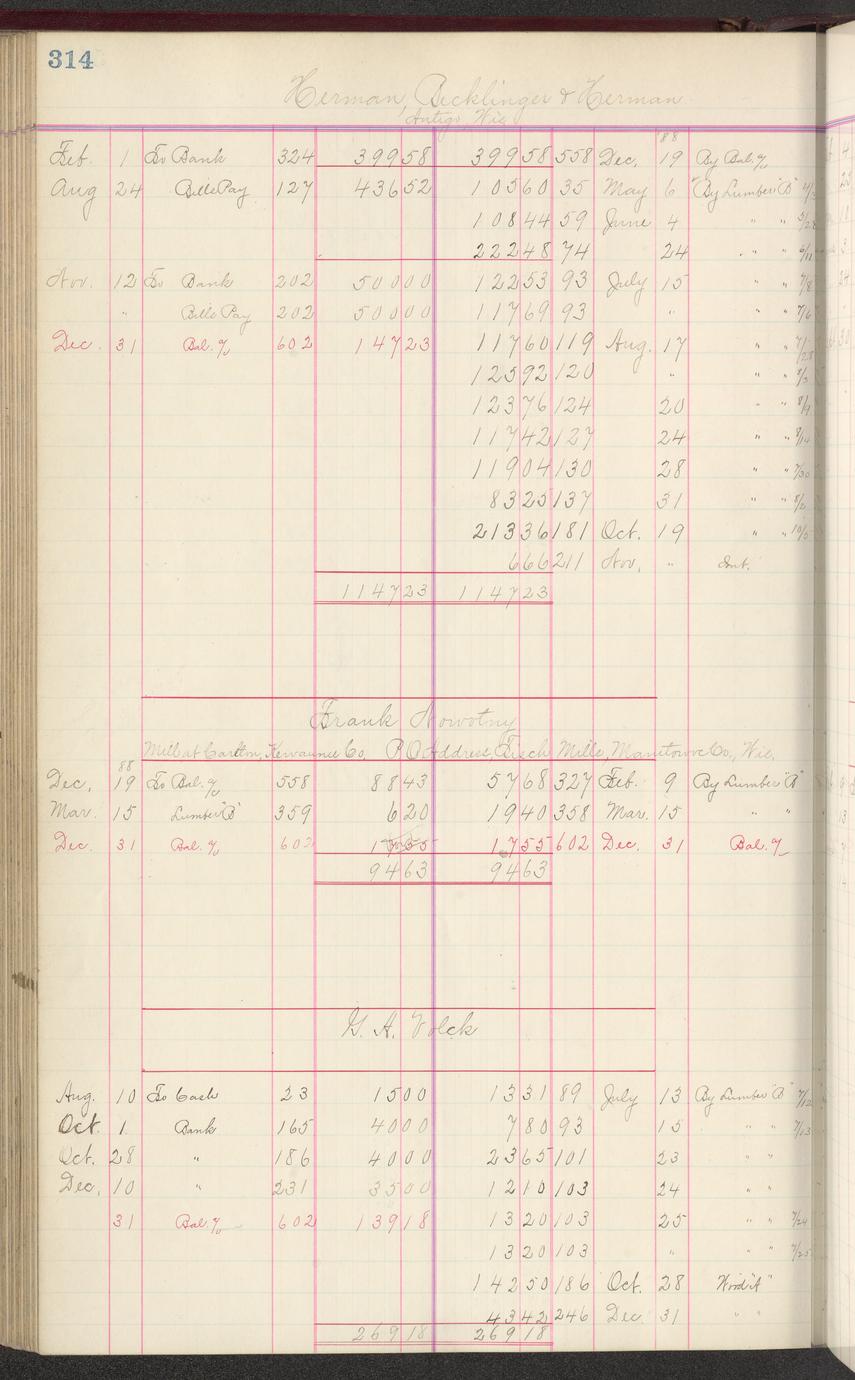 314
Herman, Becklinger & Herman
Antigo, Wis
'88
Feb. 1 To Bank 324 399 58 399 58 558 Dec. 19 By Bal. %
Aug 24 Bills Pay 127 436 52 105 60 35 May 6 By Lumber "B"
108 44 59 June 4 " " 5/28
222 48 74 24 " " 6/11
Nov. 12 To Bank 202 500 00 122 53 93 July 15 " " 7/8
" Bills Pay 202 500 00 117 69 93 " " " 7/6
Dec. 31 Bal. % 602 147 23 117 60 119 Aug. 17 " " 7/28
125 92 120 " " " 8/3
123 76 124 20 " " 8/9
117 42 127 24 " " 8/14
119 04 130 28 " " 7/30
83 25 137 31 " " 8/2
213 36 181 Oct. 19 " " 10/5
6 66 211 Nov. " Int.
1147 23 1147 23
Frank Nowotny
Mill at Carlton, Kewaunee Co, P.O Address, Tisch Mills, Manitowoc Co., Wis,
88
Dec, 19 To Bal. % 558 88 43 57 68 327 Feb. 9 By Lumber "B"
Mar. 15 Lumber "B" 359 6 20 19 40 358 Mar. 15 " "
Dec. 31 Bal. % 602 17 55 17 55 602 Dec. 31 Bal. %
94 63 94 63
G. A. Volck
Aug. 10 To Cash 23 15 00 13 31 89 July 13 By Lumber "B" 7/12
Oct. 1 Bank 165 40 00 7 80 93 15 " " 7/13
Oct. 28 " 186 40 00 23 65 101 23 " "
Dec, 10 " 231 35 00 12 10 103 24 " "
31 Bal. % 602 139 18 13 20 103 25 " " 7/24
13 20 103 " " " 7/25
142 50 186 Oct. 28 Wood "A"
43 42 246 Dec. 31 " "
269 18 269 18